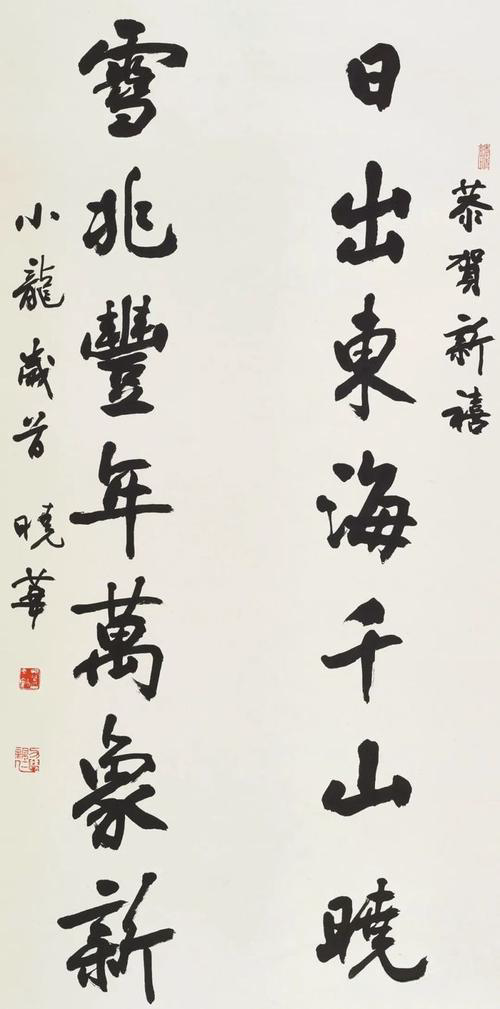 恭贺新禧
日出東海千山曉
雪兆豐年萬象新
小龍歲首 曉華